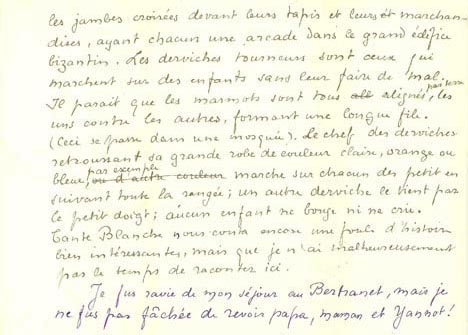 les jambes croisées devant leurs tapis et leurs marchan-
dises, ayant chacun une arcade dans le grand édifice
bizantin. Les derviches tourneurs sont ceux qui
marchent sur des enfants sans leur faire de mal.
Il parait que les marmots sont tous alignés par terre, les
uns contre les autres, formant une longue file.
(Ceci se passe dans une mosquée). Le chef des derviches
retroussant sa grande robe de couleur claire, orange ou
bleue, par exemple ou d'autre couleur marche sur chacun des petit en
suivant toute la rangée; un autre derviche le tient par
le petit doigt; aucun enfant ne bouge ni ne crie.
Tante Blanche nous conta encore une foule d'histoire
bien intéressantes, mais que je n'ai malheureusement
pas le temps de raconter ici.
Je fus ravie de mon séjour au Bertranet, mais je
ne fus pas fâchée de revoir papa, maman et Yannot!